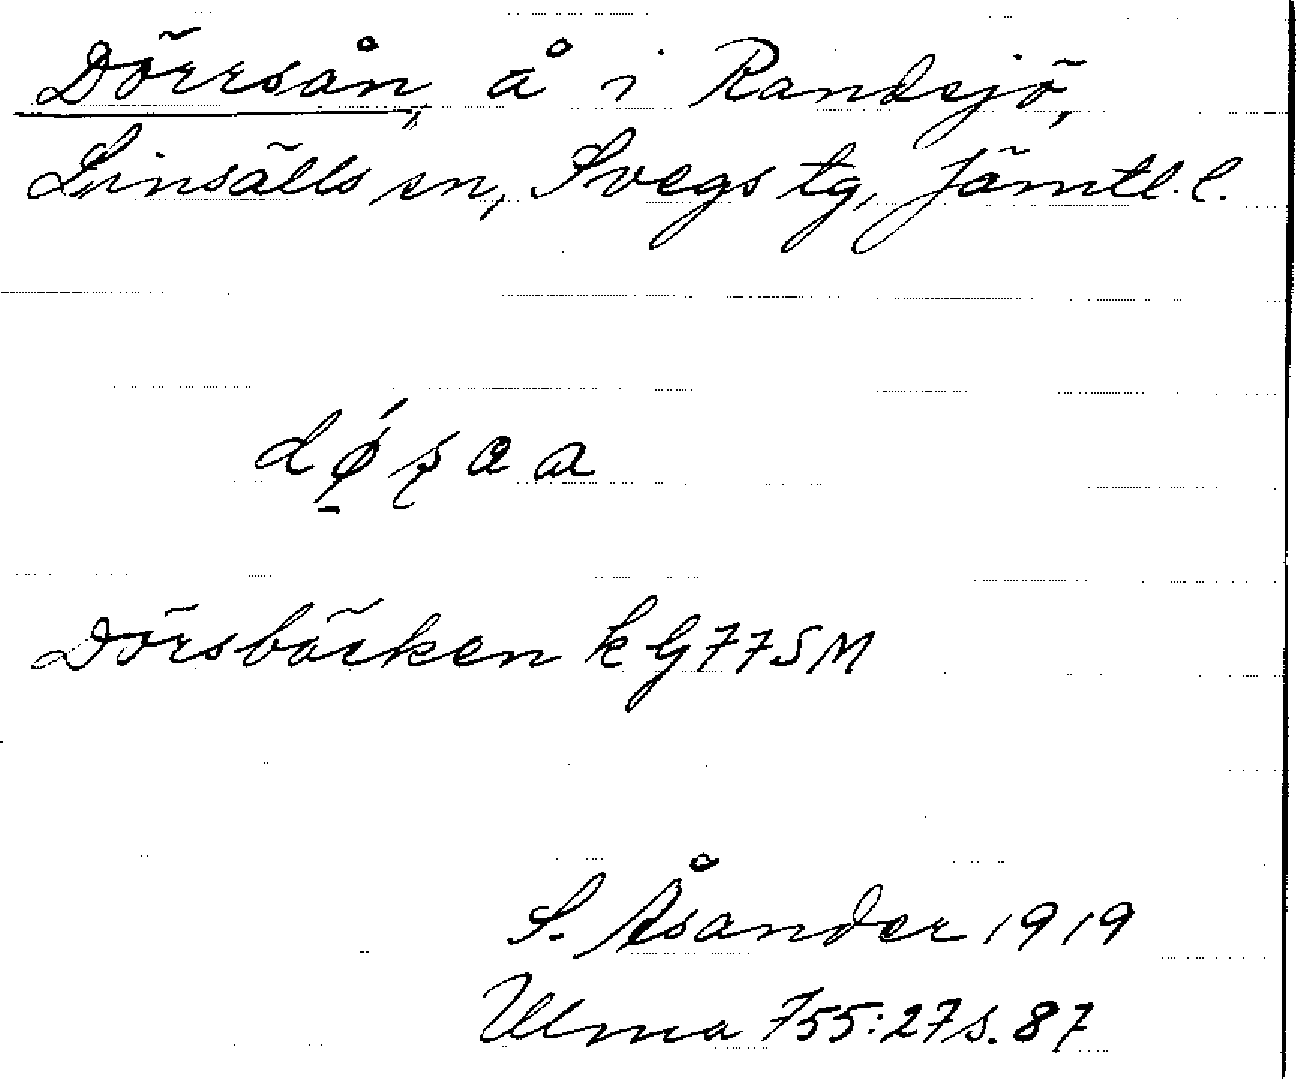 Dörrsån, å i Randsjö,
Linsälls sn, Svegs tg, Jämtl. l.
dǿ̠ʂaa
Dörsbäcken k G77SM
S. Åsander 1919
Ulma 755:27 s. 87